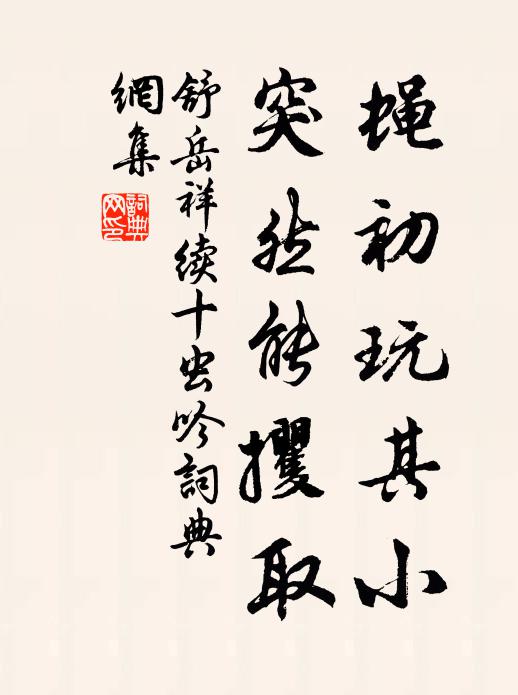 蝇初玩其小
突然能攫取
舒岳祥续十虫吟詞典
網集
詞典
网印